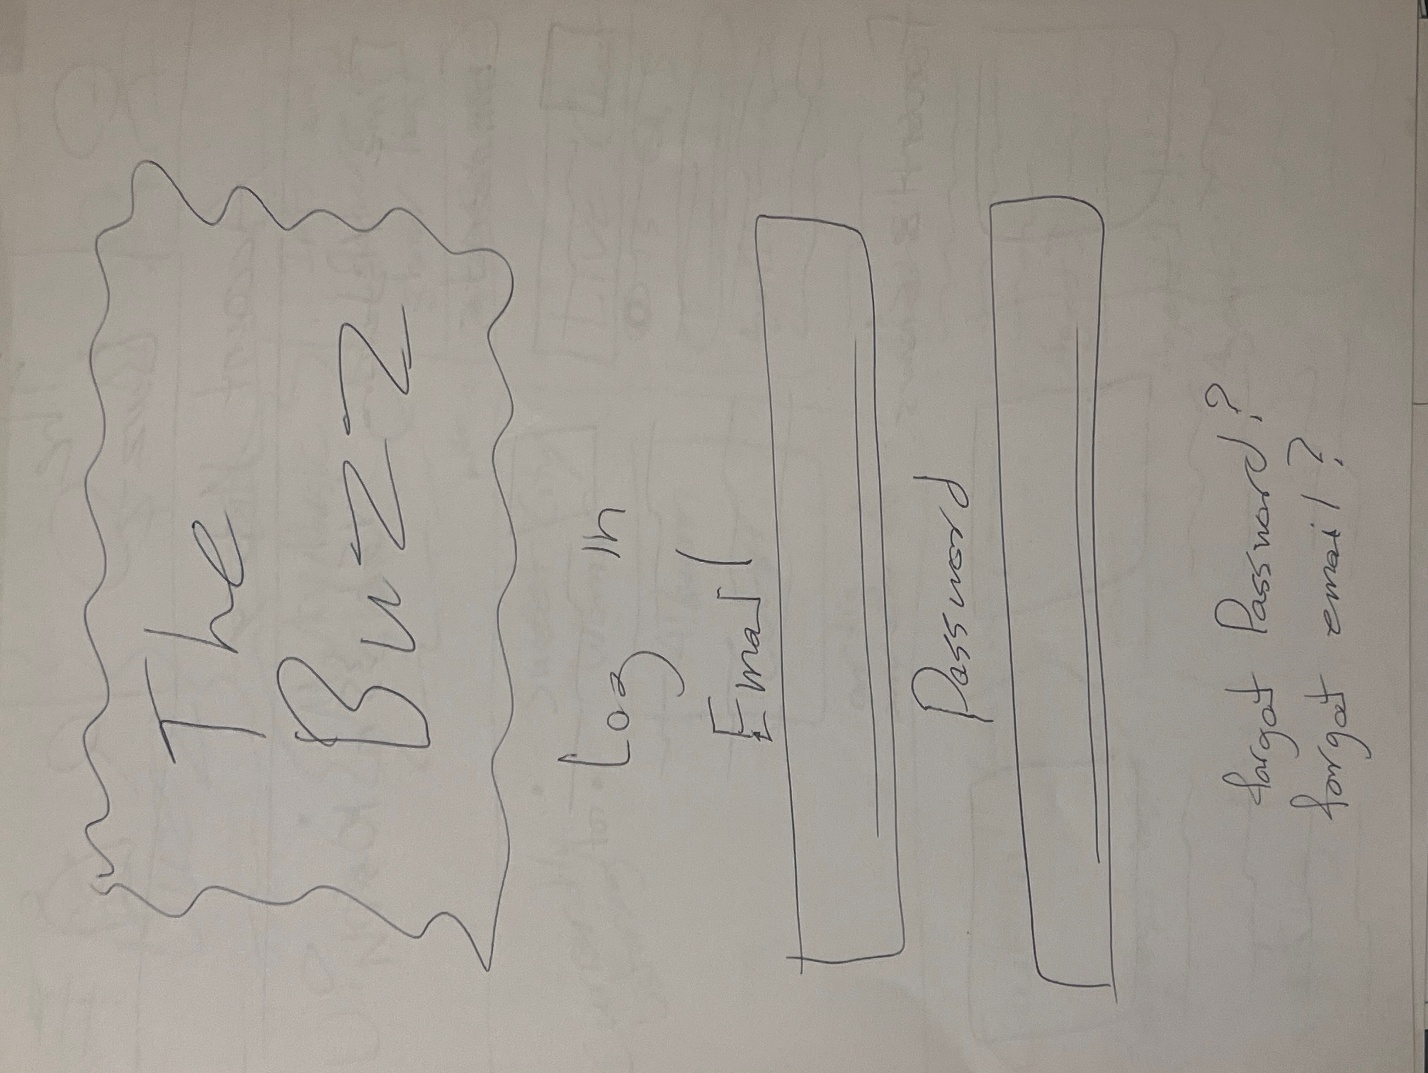 The
Buzz
Log in
Email
Password
forgot Password?
forgot email?